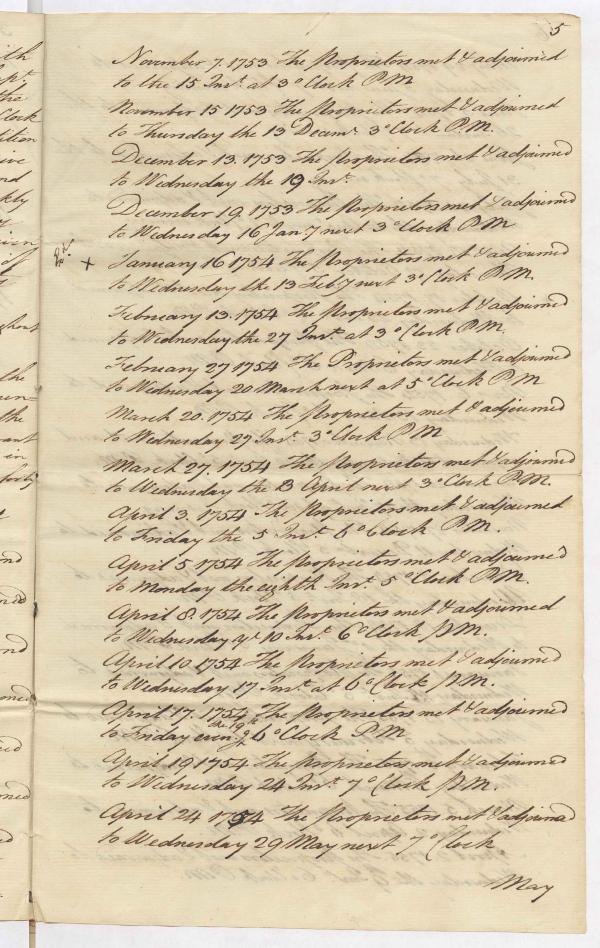 5
November 7. 1753 The Proprietors met & adjourned
to the 15 Inst. at 3 oClock P.M.
November 15 1753 The Proprietors met & adjourned
to Thursday the 13 Decemr. 3 oClock P.M.
December 13. 1753 The Proprietors met & adjourned
to Wednesday the 19 Inst.
December 19. 1753 The Proprietors met & adjourned
to Wednesday 16 Jany next 3 oClock P.M
+ January 16 1754 The Proprietors met & adjourned
to Wednesday the 13 Feby next 3 oClock P.M.
February 13. 1754 The Proprietors met & adjourned
to Wednesday the 27 Inst. at 3 oClock P.M.
February 27 1754 The Proprietors met & adjourned
to Wednesday 20 March next at 5 oClock P M
March 20. 1754 The Proprietors met & adjourned
to Wednesday 27 Inst. 3 oClock P M
March 27. 1754 The Proprietors met & adjourned
to Wednesday the 3 April next 3 oClock P.M.
April 3. 1754 The Proprietors met & adjourned
to Friday the 5 Inst. 6 oClock P.M.
April 5 1754 The Proprietors met & adjourned
to Monday the eighth Inst. 5 oClock P.M.
April 8. 1754 The Proprietors met & adjourned
to Wednesday ye 10 Inst. 6 oClock P.M.
April 10. 1754 The Proprietors met & adjourned
to Wednesday 17 Inst. at 6 oClock P.M.
April 17. 1754 The Proprietors met & adjourned
to Friday the 19 6 oClock P.M
April 19 1754 The Proprietors met & adjourned
to Wednesday 24 Inst. 7 oClock P.M.
April 24 1754 The Proprietors met & adjourned
to Wednesday 29 May next 7 oClock
May